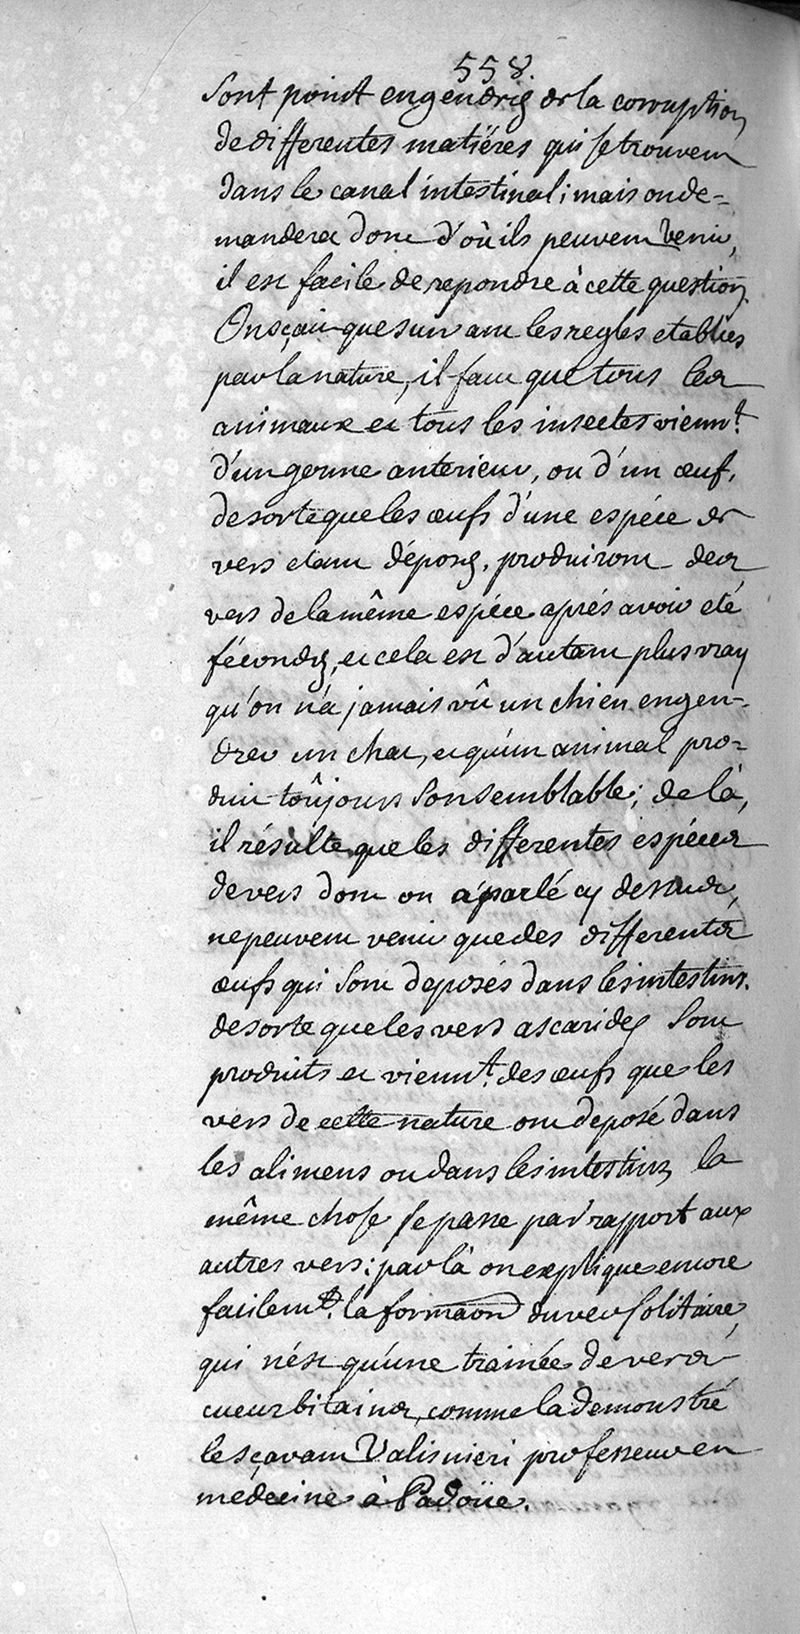 558.
sont point engendrés de la corruption
de differentes matiëres qui se trouvent
dans le canal intestinal; mais on de=
mandera donc d'où ils peuvent venir,
il est facile de repondre à cette question.
On sçait que suivant les regles etablies
par la nature, il faut que tous les
animaux et tous les insectes vienn.t
d'un germe anterieur, ou d'un œuf,
de sorte que les œufs d'une espéce de
vers etant déposés, produiront des
vers de la même espéce aprés avoir eté
fécondés, et cela est d'autant plus vray
qu'on n'a jamais vû un chien engen-
drer un chat, et qu'un animal pro=
duit toûjours son semblable; de là,
il résulte que les differentes espéces
de vers dont on a parlé cy dessus,
ne peuvent venir que des differents
œufs qui sont deposés dans les intestins.
de sorte que les vers ascarides sont
produits et vienn.t des œufs que les
vers de cette nature ont deposé dans
les alimens ou dans les intestins la
même chose se passe par rapport aux
autres vers: par là on explique encore
facilem.t la formaon du ver solitaire,
qui n'est qu'une trainée de vers
cucurbitains, comme la demonstré
le sçavant Valisnieri professeur en
médecine à Padoüe.